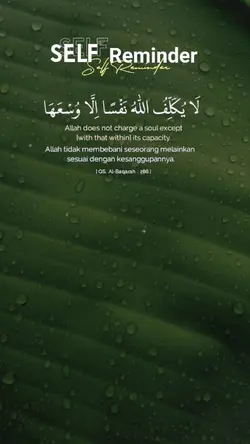 SELF Reminder
Self Reminder
لَا يُكَلِّفُ اللّٰهُ نَفْسًا اِلَّا وُسْعَهَا
Allah does not charge a soul except
[with that within] its capacity.
Allah tidak membebani seseorang melainkan
sesuai dengan kesanggupannya.
[ QS. Al-Baqarah : 286 ]